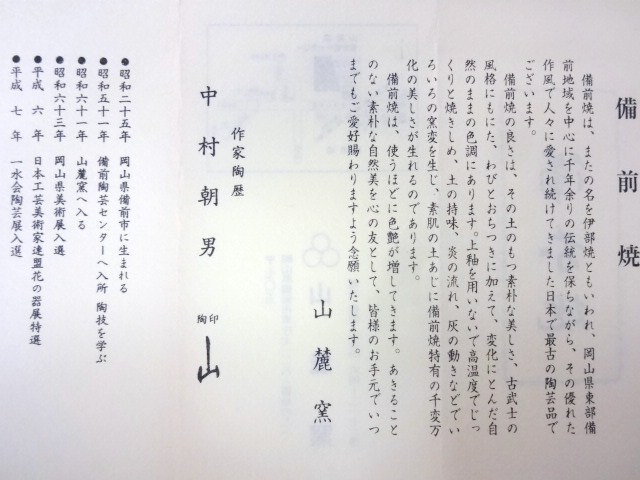 備前焼
備前焼は、またの名を伊部焼ともいわれ、岡山県東部備
前地域を中心に千年余りの伝統を保ちながら、その優れた
作風で人々に愛され続けてきました日本で最古の陶芸品で
ございます。
備前焼の良さは、その土のもつ素朴な美しさ、古武士の
風格にもにた、わびとおちつきに加えて、変化にとんだ自
然のままの色調にあります。上釉を用いないで高温度でじっ
くりと焼きしめ、土の持味、炎の流れ、灰の動きなどでい
ろいろの窯変を生じ、素肌の土あじに備前焼特有の千変万
化の美しさが生れるのであります。
備前焼は、使うほどに色艶が増してきます。あきること
のない素朴な自然美を心の友として、皆様のお手元でいつ
までもご愛好賜わりますよう念願いたします。
山麓窯
作家陶歴
中村朝男 陶印 山
●昭和二十五年 岡山県備前市に生まれる
●昭和五十一年 備前陶芸センターへ入所 陶技を学ぶ
●昭和六十一年 山麓窯へ入る
●昭和六十三年 岡山県美術展入選
●平成 六 年 日本工芸美術家連盟花の器展特選
●平成 七 年 一水会陶芸展入選